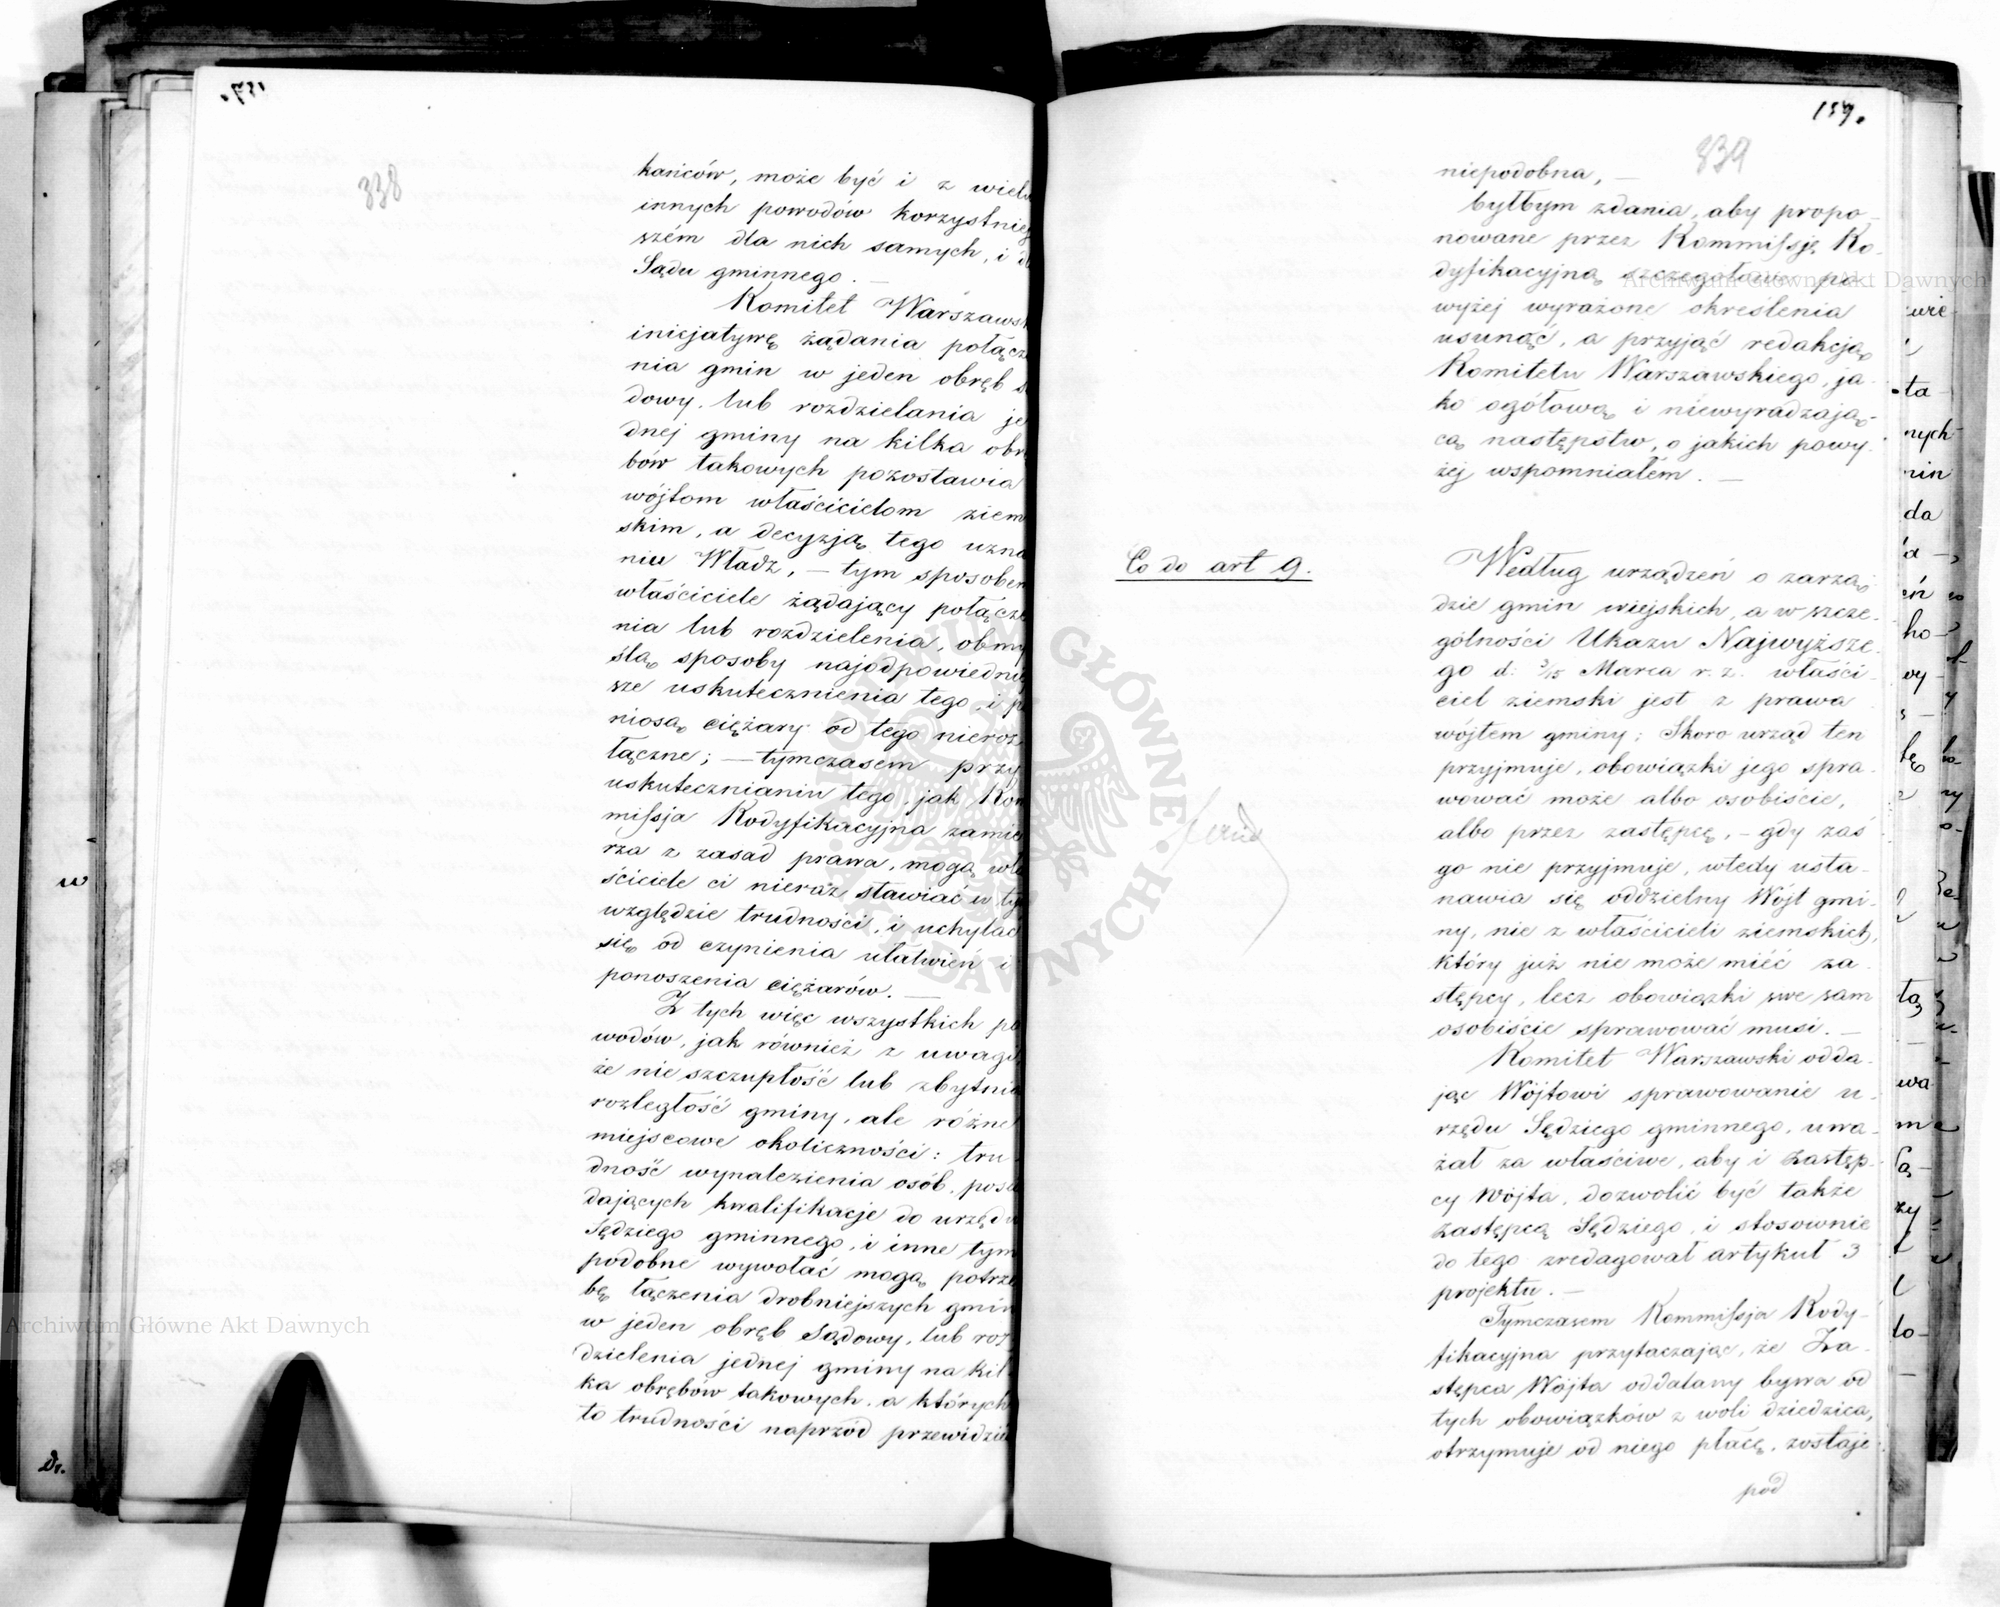 338
kańców, może być i z wielu
innych powodów korzystniej
szém dla nich samych, i d
Sądu gminnego. —
Komitet Warszawsk
inicjatywę żądania połącze
nia gmin w jeden obręb s
dowy, lub rozdzielania je
dnej gminy na kilka obrę
bów takowych pozostawia
wójtom właścicielom ziem
skim, a decyzją tego uzna
niu Władz, — tym sposobem
właściciele żądający połącze
nia lub rozdzielenia, obmy
ślą sposoby najodpowiedniej
sze uskutecznienia tego, i po
niosą ciężary od tego nieroz
łączne; — tymczasem przy
uskutecznianiu tego, jak Kom
missja Kodyfikacyjna zamie
rza z zasad prawa, mogą wła
ściciele ci nieraz stawiać w tym
względzie trudności, i uchylać
się od czynienia ułatwień i
ponoszenia ciężarów. —
Z tych więc wszystkich po
wodów, jak również z uwagi,
że nie szczupłość lub zbytnia
rozległość gminy, ale różne
miejscowe okoliczności: tru
dność wynalezienia osób, posia
dających kwalifikacje do urzędu
Sędziego gminnego, i inne tym
podobne wywołać mogą potrze
bę łączenia drobniejszych gmin
w jeden obręb Sądowy, lub roz
dzielenia jednej gminy na kil
ka obrębów takowych, a których
to trudności naprzód przewidzić
159.
339
niepodobna, —
byłbym zdania, aby propo-
nowane przez Kommissję Ko-
dyfikacyjną szczegółowe po-
wyżej wyrażone określenia
usunąć, a przyjąć redakcją
Komitetu Warszawskiego, ja-
ko ogółową i niewyradzają-
cą następstw, o jakich powy-
żej wspomniałem. —
Co do art 9.
Według urządzeń o zarzą-
dzie gmin wiejskich, a w szcze-
gólności Ukazu Najwyższe-
go d: 3/15 Marca r. z. właści-
ciel ziemski jest z prawa
wójtem gminy; Skoro urząd ten
przyjmuje, obowiązki jego spra-
wować może albo osobiście,
albo przez zastępcę, — gdy zaś
go nie przyjmuje, wtedy usta-
nawia się oddzielny Wójt gmi-
ny, nie z właścicieli ziemskich,
który już nie może mieć za-
stępcy, lecz obowiązki swe sam
osobiście sprawować musi. —
Komitet Warszawski odda-
jąc Wójtowi sprawowanie u-
rzędu Sędziego gminnego, uwa-
żał za właściwe, aby i Zastęp-
cy Wójta, dozwolić być także
zastępcą Sędziego, i stosownie
do tego zredagował artykuł 3
projektu. —
Tymczasem Kommissja Kody-
fikacyjna przytaczając, że Za-
stępca Wójta oddalany bywa od
tych obowiązków z woli dziedzica,
otrzymuje od niego płacę, zostaje
pod
Archiwum Główne Akt Dawnych
Archiwum Główne Akt Dawnych